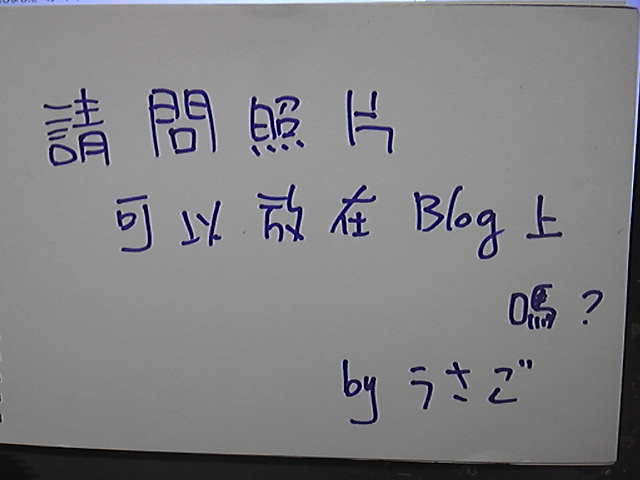 請問照片
可以放在Blog上
嗎?
by うさご